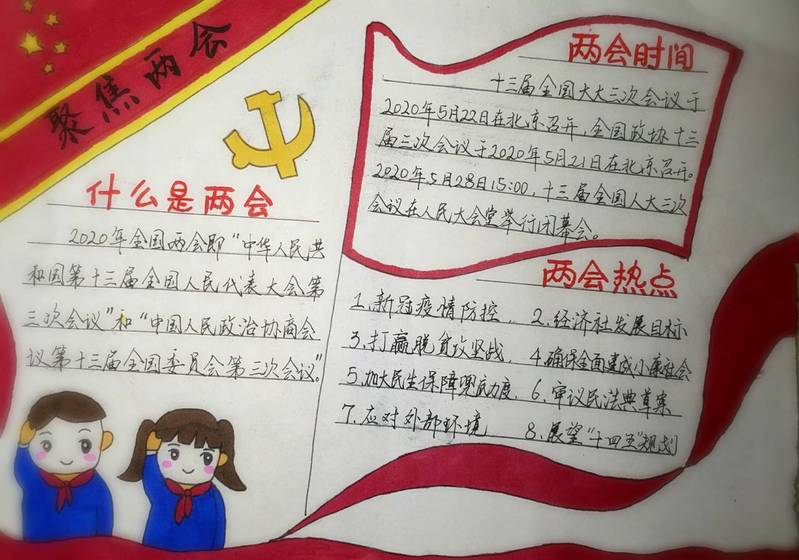 聚焦两会
什么是两会
2020年全国两会即“中华人民共
和国第十三届全国人民代表大会第
三次会议”和“中国人民政治协商会
议第十三届全国委员会第三次会议”。
两会时间
十三届全国大大三次会议于
2020年5月22日在北京召开,全国政协十三
届三次会议于2020年5月21日在北京召开。
2020年5月28日15:00,十三届全国人大三次
会议在人民大会堂举行闭幕会。
两会热点
1.新冠疫情防控. 2.经济社发展目标
3.打赢脱贫攻坚战. 4.确保全面建成小康社会
5.加大民生保障兜底力度. 6.审议民法典草案
7.应对外部环境 8.展望“十四五”规划